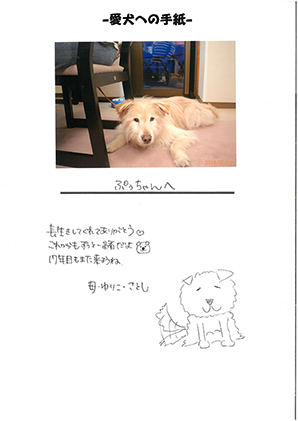 -愛犬への手紙-
ぷぅちゃんへ
長生きしてくれてありがとう♡
これからもずっと一緒だよ
17年目もまた来ようね
母・ゆりこ・さとし